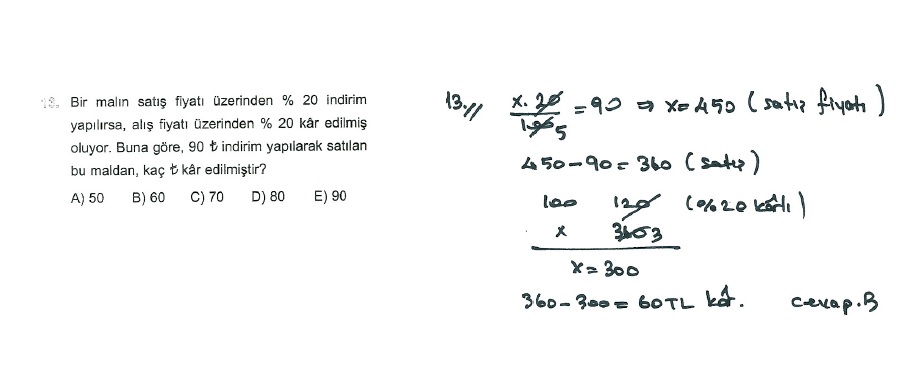 13. Bir malın satış fiyatı üzerinden % 20 indirim
yapılırsa, alış fiyatı üzerinden % 20 kâr edilmiş
oluyor. Buna göre, 90 ₺ indirim yapılarak satılan
bu maldan, kaç ₺ kâr edilmiştir?
A) 50 B) 60 C) 70 D) 80 E) 90
13.// x.20/100 5 = 90 ⇒ x=450 (satış fiyatı)
450-90=360 (satış)
100 120 (%20 kârlı)
x 360 3
x=300
360-300=60TL kâr. cevap.B